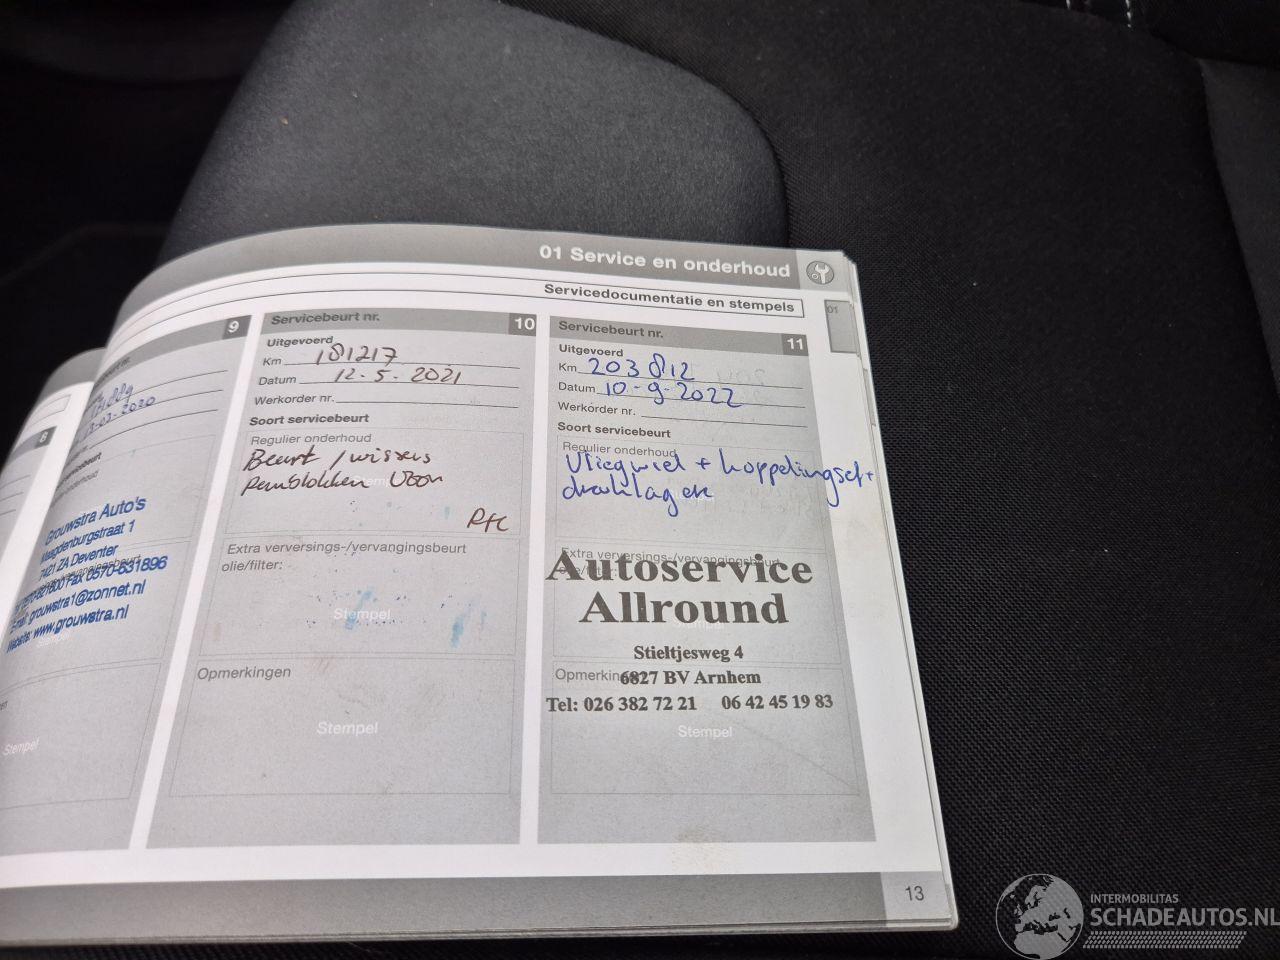 01 Service en onderhoud
Servicedocumentatie en stempels
01
8
9
13-02-2020
Grouwstra Auto's
Maagdenburgstraat 1
7421 ZA Deventer
Fax 0570-531896
E-mail: grouwstra1@zonnet.nl
Website: www.grouwstra.nl
Stempel
Servicebeurt nr. 10
Uitgevoerd
Km 181217
Datum 12-5-2021
Werkorder nr.
Soort servicebeurt
Regulier onderhoud
Beurt / wissers
Remblokken Voor
Extra verversings-/vervangingsbeurt
olie/filter:
Stempel
Opmerkingen
Stempel
Servicebeurt nr. 11
Uitgevoerd
Km 203812
Datum 10-9-2022
Werkorder nr.
Soort servicebeurt
Regulier onderhoud
Vliegwiel + koppelingset +
druklager
Extra verversings-/vervangingsbeurt
olie/filter:
Autoservice
Allround
Stieltjesweg 4
Opmerkingen
6827 BV Arnhem
Tel: 026 382 72 21 06 42 45 19 83
Stempel
13
INTERMOBILITAS
SCHADEAUTOS.NL